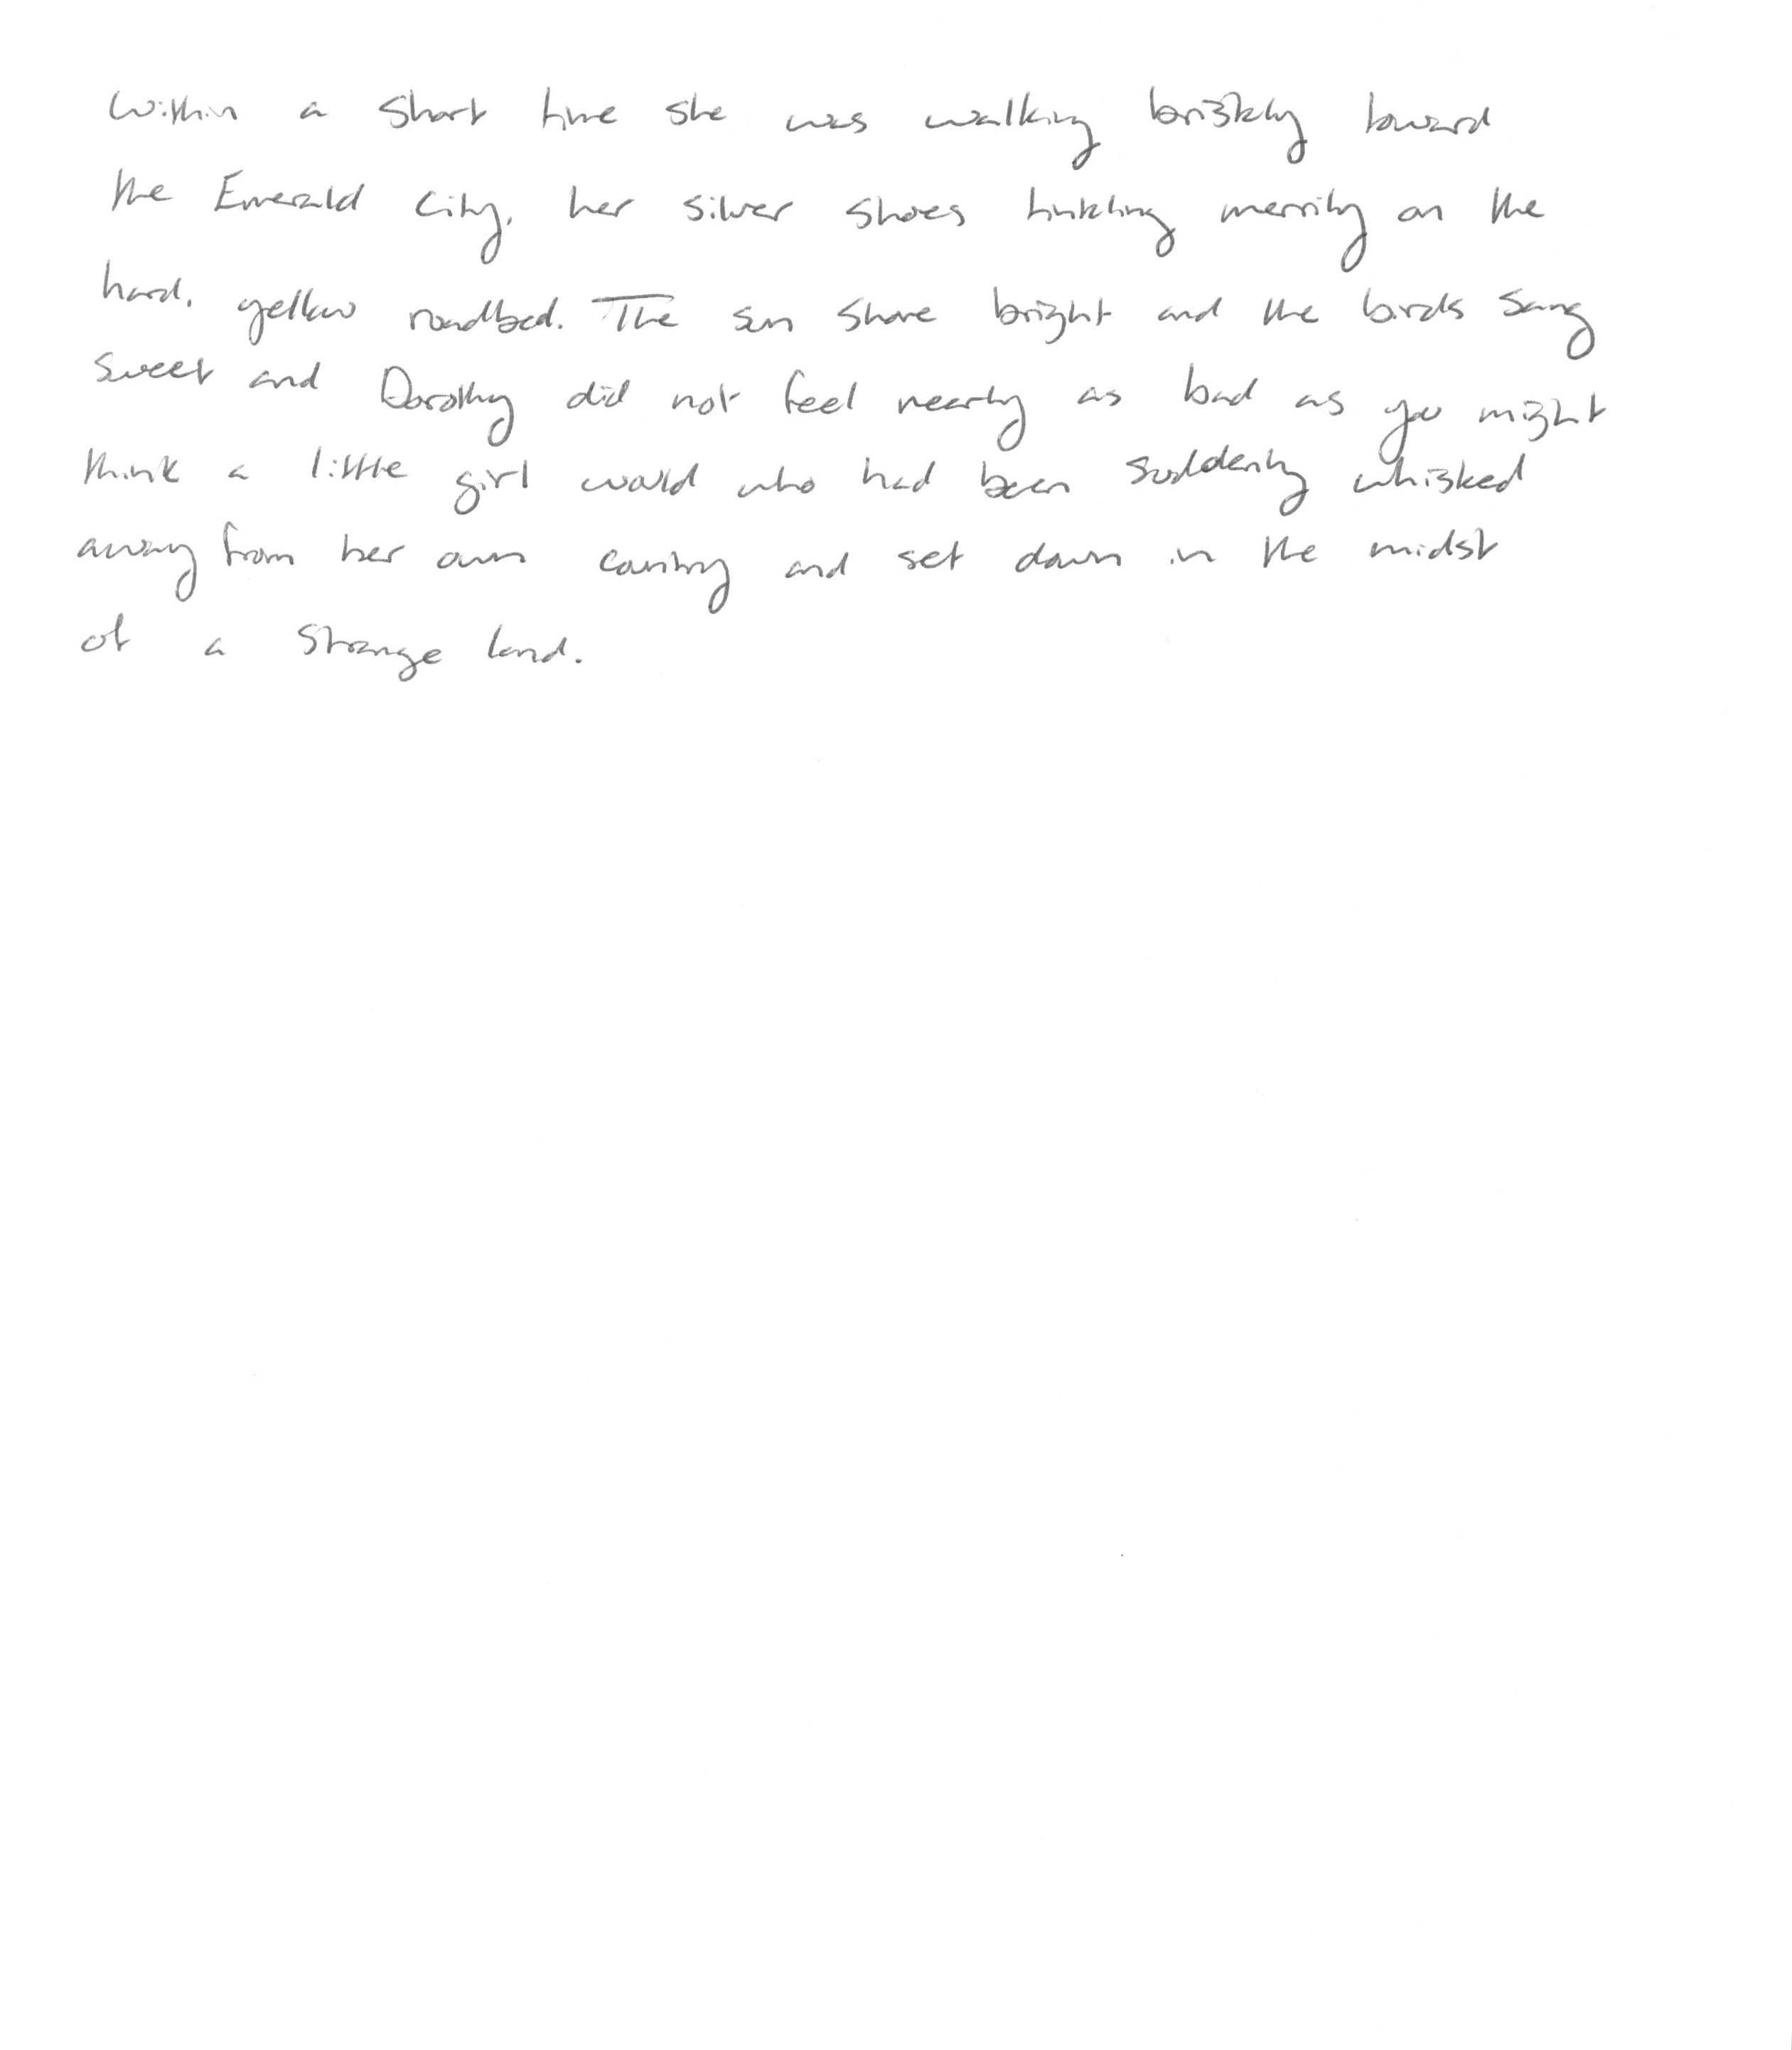 Within a short time she was walking briskly toward
the Emerald City, her silver shoes tinkling merrily on the
hard, yellow roadbed. The sun shone bright and the birds sang
sweet and Dorothy did not feel nearly as bad as you might
think a little girl would who had been suddenly whisked
away from her own country and set down in the midst
of a strange land.